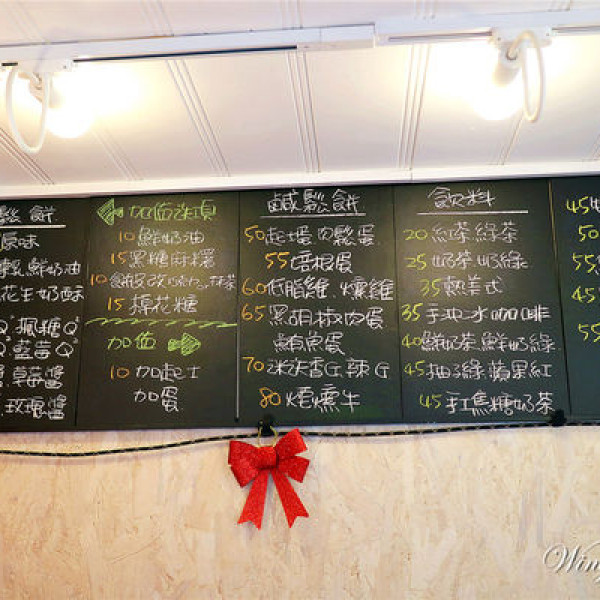 鬆餅
原味
鮮奶油
花生奶酥
楓糖
藍莓
草莓醬
玫瑰醬
加值選項
10 鮮奶油
15 黑糖麻糬
15 棉花糖
加值
10 加起士
加蛋
鹹鬆餅
50 起士蛋.肉鬆蛋
55 培根蛋
60 低脂雞.燻雞
65 黑胡椒肉蛋
鮪魚蛋
80 燒燻牛
飲料
20 紅茶.綠茶
25 奶茶.奶綠
35 熱美式
35 手沖冰咖啡
40 鮮奶茶.鮮奶綠
45 柚子綠.蘋果紅
45 手工焦糖奶茶
45
50
55
45
55
Wing